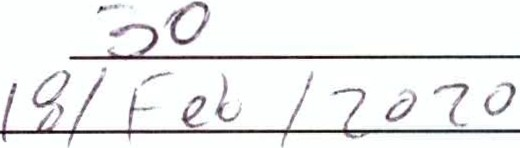 30
18/Feb/2020